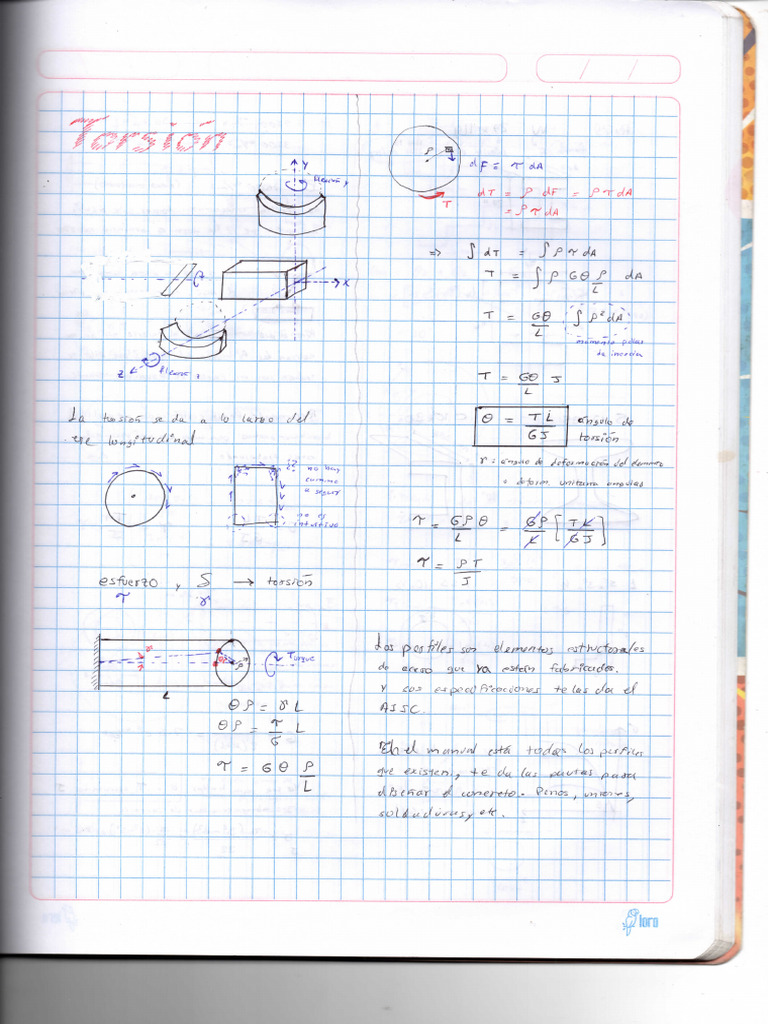 Torsión
Y
Flexión y
X
Z
Flexión z
La torsión se da a lo largo del
eje longitudinal
no hay
camino
a seguir
no es
intuitivo
esfuerzo y δ → torsión
τ γ
Torque
L
θρ = γ L
θρ = τ/G L
τ = G θ ρ/L
ρ
dF = τ dA
T
dT = ρ dF = ρ τ dA
= ρ τ dA
⇒ ∫ dT = ∫ ρ τ dA
T = ∫ ρ Gθ ρ/L dA
T = Gθ/L ∫ ρ² dA
momento polar
de inercia
T = Gθ/L J
θ = TL/GJ ángulo de
torsión
γ = ángulo de deformación del elemento
o deform. unitaria angular
τ = Gρ/L θ = Gρ/L [TL/GJ]
τ = ρT/J
Los perfiles son elementos estructurales
de acero que ya están fabricados.
y las especificaciones te las da el
AISC.
En el manual está todos los perfiles
que existen, te da las pautas para
diseñar el concreto. Pernos, uniones,
soldaduras, y etc.
loro